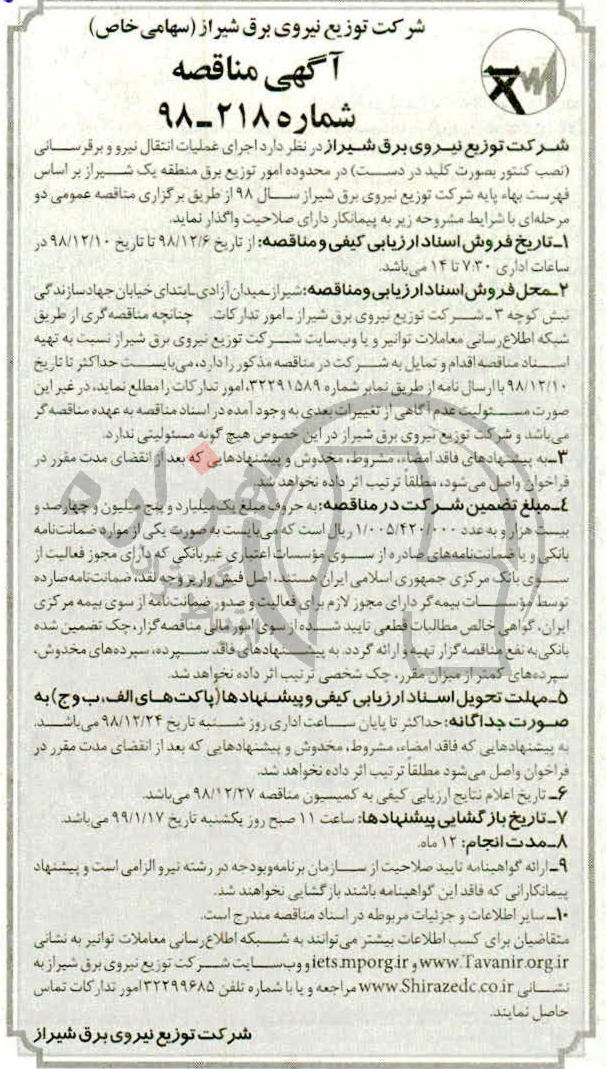 شرکت توزیع نیروی برق شیراز (سهامی خاص)
آگهی مناقصه
شماره ۲۱۸-۹۸
شرکت توزیع نیروی برق شیراز در نظر دارد اجرای عملیات انتقال نیرو و برقرسانی
(نصب کنتور بصورت کلید در دست) در محدوده امور توزیع برق منطقه یک شیراز بر اساس
فهرست بهاء پایه شرکت توزیع نیروی برق شیراز سال ۹۸ از طریق برگزاری مناقصه عمومی دو
مرحله‌ای با شرایط مشروحه زیر به پیمانکار دارای صلاحیت واگذار نماید.
۱-تاریخ فروش اسناد ارزیابی کیفی و مناقصه: از تاریخ ۹۸/۱۲/۶ تا تاریخ ۹۸/۱۲/۱۰ در
ساعات اداری ۷:۳۰ تا ۱۴ می‌باشد.
۲-محل فروش اسناد ارزیابی و مناقصه: شیراز-میدان آزادی-ابتدای خیابان جهاد سازندگی
نبش کوچه ۳ - شرکت توزیع نیروی برق شیراز - امور تدارکات. چنانچه مناقصه‌گری از طریق
شبکه اطلاع‌رسانی معاملات توانیر و یا وب‌سایت شرکت توزیع نیروی برق شیراز نسبت به تهیه
اسناد مناقصه اقدام و تمایل به شرکت در مناقصه مذکور را دارد، می‌بایست حداکثر تا تاریخ
۹۸/۱۲/۱۰ با ارسال نامه از طریق نمابر شماره ۳۲۲۹۱۵۸۹، امور تدارکات را مطلع نماید، در غیر این
صورت مسئولیت عدم آگاهی از تغییرات بعدی به وجود آمده در اسناد مناقصه به عهده مناقصه‌گر
می‌باشد و شرکت توزیع نیروی برق شیراز در این خصوص هیچ گونه مسئولیتی ندارد.
۳-به پیشنهادهای فاقد امضاء، مشروط، مخدوش و پیشنهادهایی که بعد از انقضای مدت مقرر در
فراخوان واصل می‌شود، مطلقاً ترتیب اثر داده نخواهد شد.
۴-مبلغ تضمین شرکت در مناقصه: به حروف مبلغ یک میلیارد و پنج میلیون و چهارصد و
بیست هزار و به عدد ۱/۰۰۵/۴۲۰/۰۰۰ ریال است که می‌بایست به صورت یکی از موارد ضمانت‌نامه
بانکی و یا ضمانت‌نامه‌های صادره از سوی مؤسسات اعتباری غیربانکی که دارای مجوز فعالیت از
سوی بانک مرکزی جمهوری اسلامی ایران هستند، اصل فیش واریز وجه نقد، ضمانت‌نامه صادره
توسط مؤسسات بیمه‌گر دارای مجوز لازم برای فعالیت و صدور ضمانت‌نامه از سوی بیمه مرکزی
ایران، گواهی خالص مطالبات قطعی تایید شده از سوی امور مالی مناقصه‌گزار، چک تضمین شده
بانکی به نفع مناقصه‌گزار تهیه و ارائه گردد. به پیشنهادهای فاقد سپرده، سپرده‌های مخدوش،
سپرده‌های کمتر از میزان مقرر، چک شخصی ترتیب اثر داده نخواهد شد.
۵-مهلت تحویل اسناد ارزیابی کیفی و پیشنهادها (پاکت‌های الف، ب و ج) به
صورت جداگانه: حداکثر تا پایان ساعت اداری روز شنبه تاریخ ۹۸/۱۲/۲۴ می‌باشد.
به پیشنهادهایی که فاقد امضاء، مشروط، مخدوش و پیشنهادهایی که بعد از انقضای مدت مقرر در
فراخوان واصل می‌شود مطلقاً ترتیب اثر داده نخواهد شد.
۶- تاریخ اعلام نتایج ارزیابی کیفی به کمیسیون مناقصه ۹۸/۱۲/۲۷ می‌باشد.
۷-تاریخ بازگشایی پیشنهادها: ساعت ۱۱ صبح روز یکشنبه تاریخ ۹۹/۱/۱۷ می‌باشد.
۸-مدت انجام: ۱۲ ماه.
۹-ارائه گواهینامه تایید صلاحیت از سازمان برنامه‌وبودجه در رشته نیرو الزامی است و پیشنهاد
پیمانکارانی که فاقد این گواهینامه باشند بازگشایی نخواهند شد.
۱۰-سایر اطلاعات و جزئیات مربوطه در اسناد مناقصه مندرج است.
متقاضیان برای کسب اطلاعات بیشتر می‌توانند به شبکه اطلاع‌رسانی معاملات توانیر به نشانی
www.Tavanir.org.ir و iets.mporg.ir و وب‌سایت شرکت توزیع نیروی برق شیراز به
نشانی www.Shirazedc.co.ir مراجعه و یا با شماره تلفن ۳۲۲۹۹۶۸۵ امور تدارکات تماس
حاصل نمایند.
شرکت توزیع نیروی برق شیراز